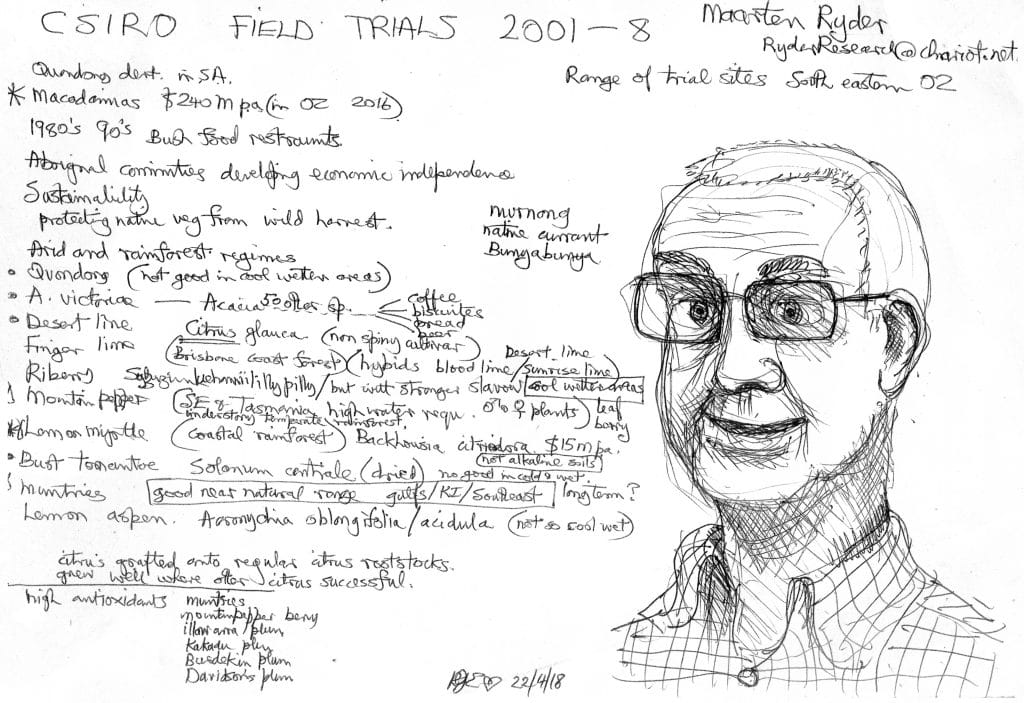 CSIRO FIELD TRIALS 2001-8
Maarten Ryder
RyderResearch@chariot.net.
Range of trial sites South eastern OZ
Quondong dest. in SA.
* Macadamias $240m pa (in OZ 2016)
1980's 90's Bush food restraunts
Aboriginal communities developing economic independence
Sustainability
protecting native veg from wild harvest.
murnong
native currant
Bunyabunya
Arid and rainforest regimes
• Quondong (not good in cool wetter areas)
• A. victoriae — Acacia 50 other sp.
coffee
biscuites
bread
beer
• Desert lime Citrus glauca (non spiny cultivar)
Finger lime (Brisbane coast forest) (hybids blood lime / sunrise lime)
Desert lime
Riberry lillypilly / but with stronger flavour cool wetter areas
Mountain pepper (SE & Tasmania high water requ. ♂ % ♀ plants) leaf berry
understory temperate rainforest.
* Lemon myrtle (coastal rainforest) Backhousia citriodora $15m pa.
not alkaline soils
• Bush tomatoe Solanum centrale (dried) no good in cold & wet.
Muntries good near natural range gulfs/KI/Southeast long term?
Lemon aspen. Acronychia oblongifolia / acidula (not so cool wet)
citrus grafted onto regular citrus rootstocks.
grew well where other citrus successful.
high antioxidants muntries
mountainpepper berry
illawarra plum
Kakadu plum
Burdekin plum
Davidson's plum
22/4/18